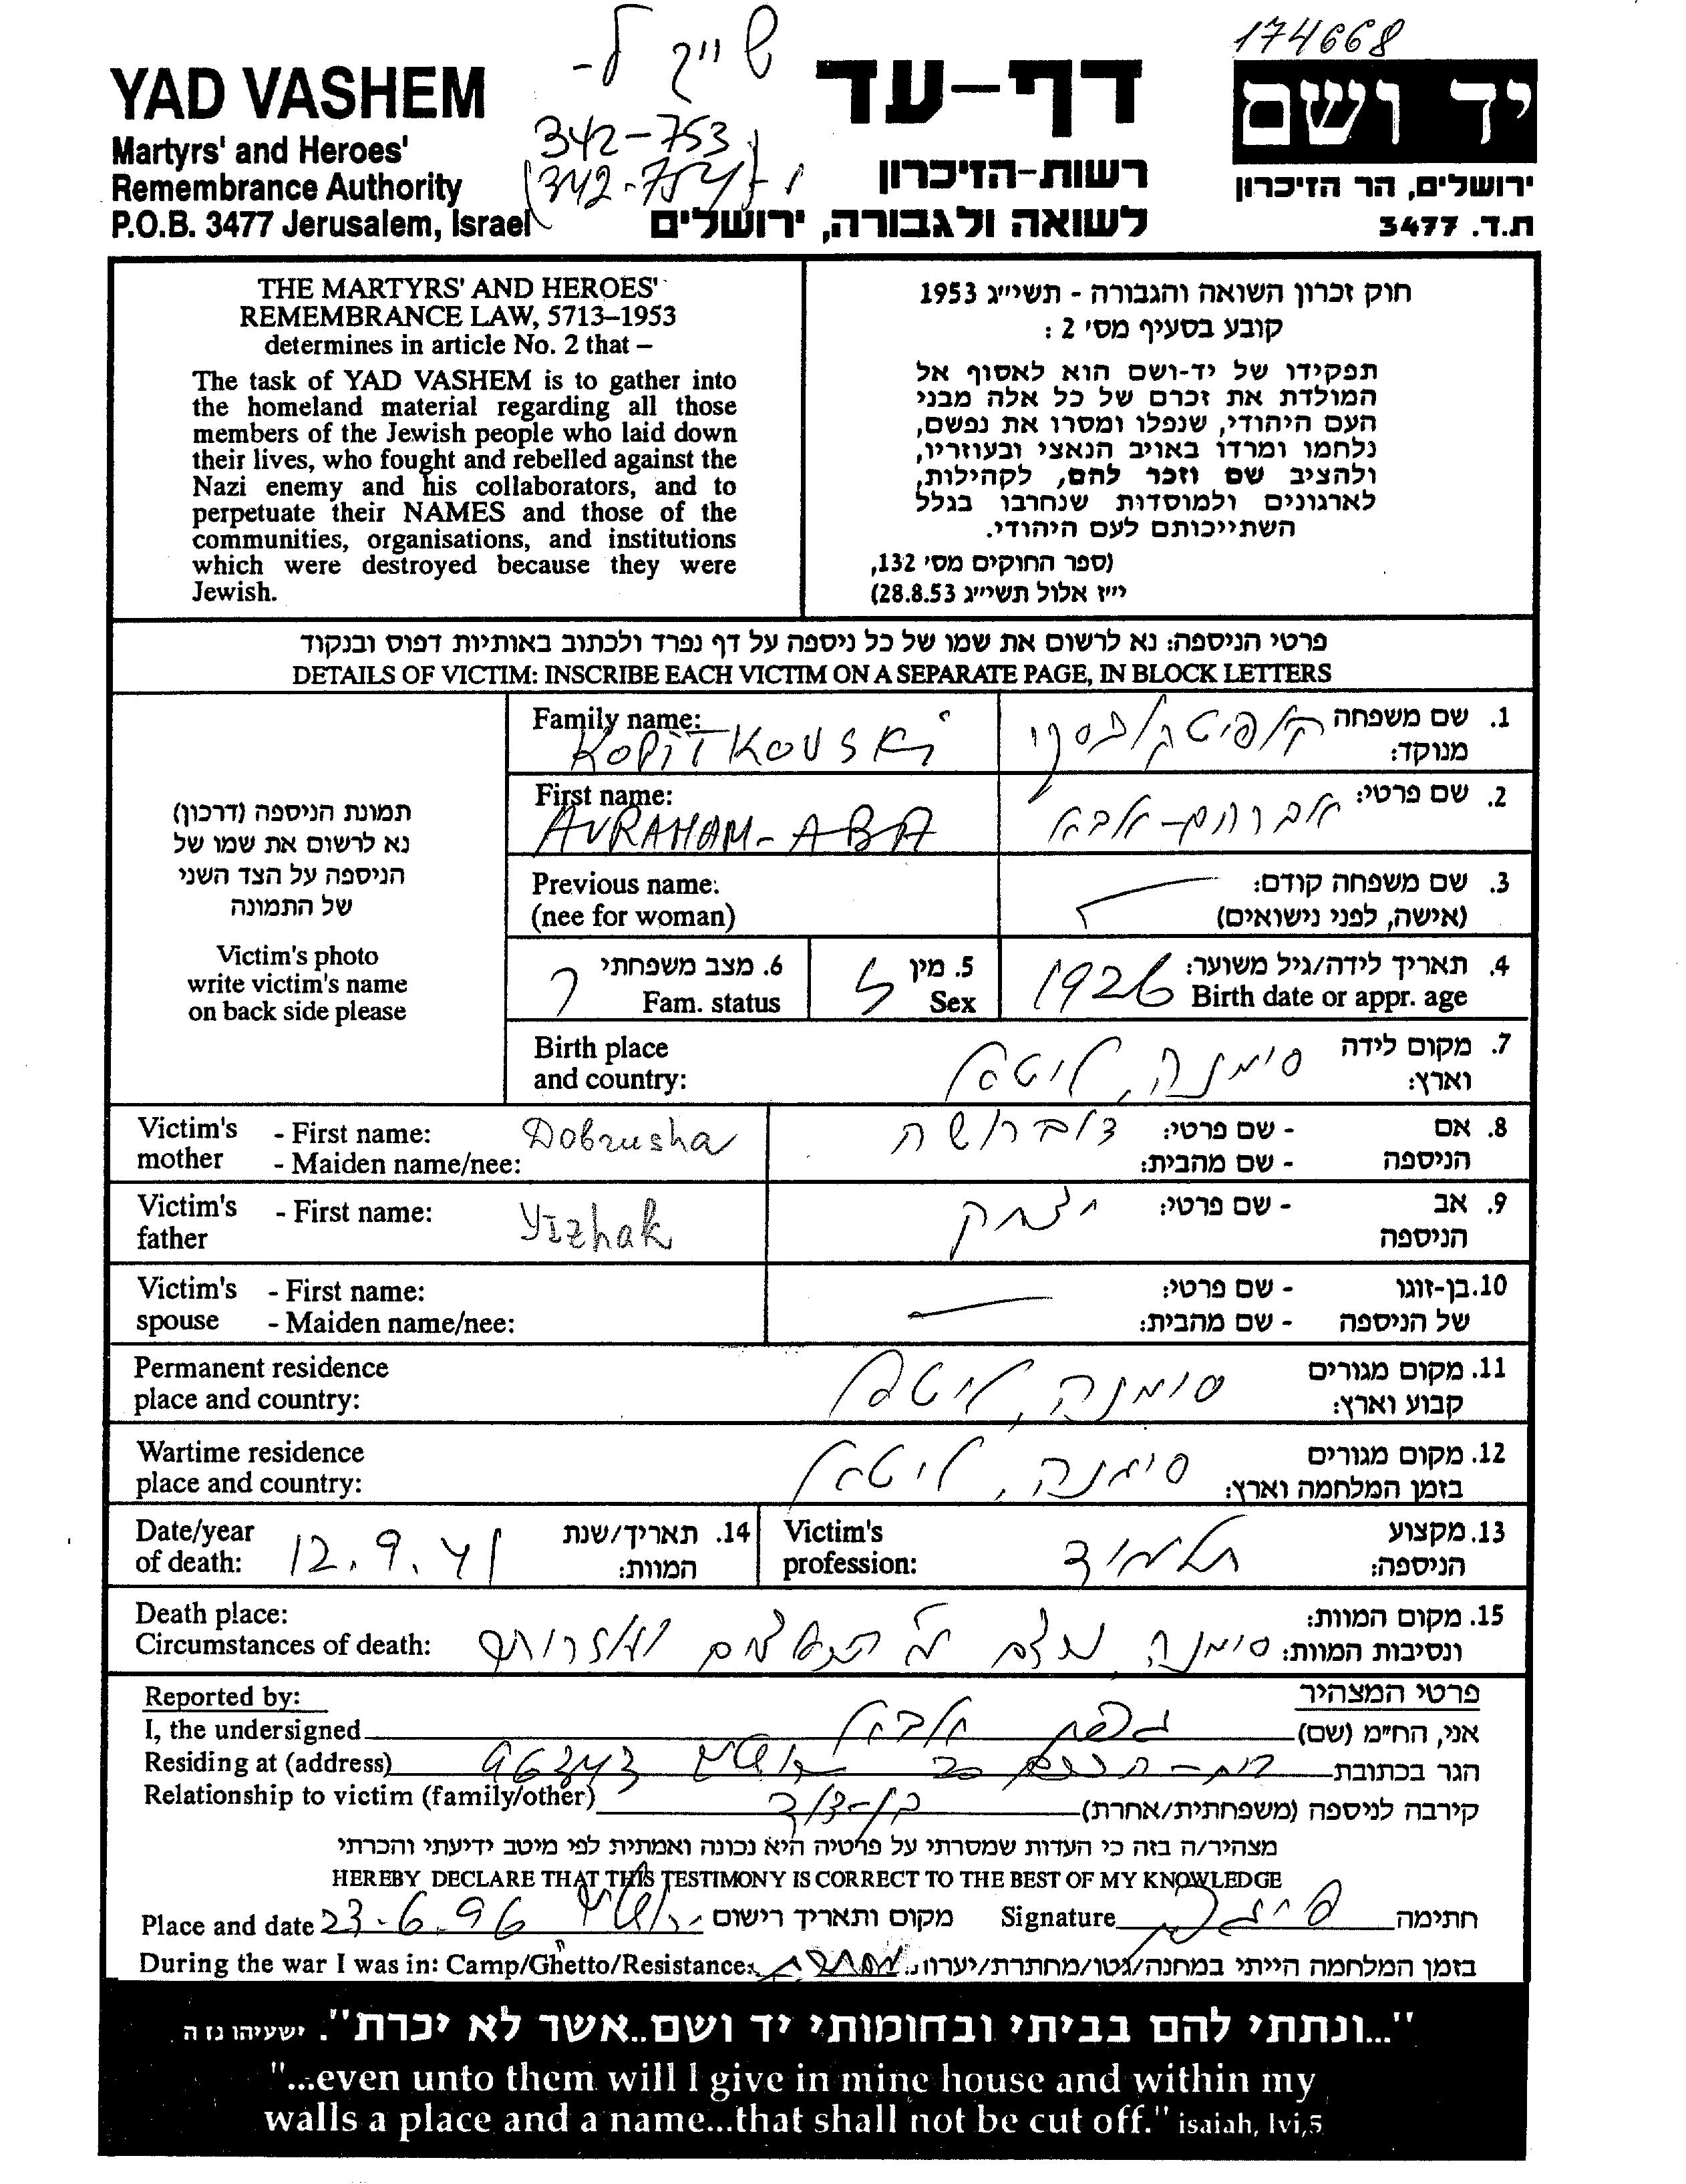 174668
שייך ל-
342-753
(342-754) ו-
YAD VASHEM
Martyrs' and Heroes'
Remembrance Authority
P.O.B. 3477 Jerusalem, Israel
דף-עד
רשות-הזיכרון
לשואה ולגבורה, ירושלים
יד ושם
ירושלים, הר הזיכרון
ת.ד. 3477
THE MARTYRS' AND HEROES'
REMEMBRANCE LAW, 5713–1953
determines in article No. 2 that –
The task of YAD VASHEM is to gather into
the homeland material regarding all those
members of the Jewish people who laid down
their lives, who fought and rebelled against the
Nazi enemy and his collaborators, and to
perpetuate their NAMES and those of the
communities, organisations, and institutions
which were destroyed because they were
Jewish.
חוק זכרון השואה והגבורה - תשי״ג 1953
קובע בסעיף מס׳ 2 :
תפקידו של יד-ושם הוא לאסוף אל
המולדת את זכרם של כל אלה מבני
העם היהודי, שנפלו ומסרו את נפשם,
נלחמו ומרדו באויב הנאצי ובעוזריו,
ולהציב שם וזכר להם, לקהילות,
לארגונים ולמוסדות שנחרבו בגלל
השתייכותם לעם היהודי.
(ספר החוקים מס׳ 132,
י״ז אלול תשי״ג 28.8.53)
פרטי הניספה: נא לרשום את שמו של כל ניספה על דף נפרד ולכתוב באותיות דפוס ובנקוד
DETAILS OF VICTIM: INSCRIBE EACH VICTIM ON A SEPARATE PAGE, IN BLOCK LETTERS
תמונת הניספה (דרכון)
נא לרשום את שמו של
הניספה על הצד השני
של התמונה
Victim's photo
write victim's name
on back side please
Family name: KOPITKOVSKi
1. שם משפחה קופיטקובסקי
מנוקד:
First name: AVRAHAM-ABA
2. שם פרטי: אברהם-אבא
Previous name:
(nee for woman)
3. שם משפחה קודם:
(אישה, לפני נישואים)
4. תאריך לידה/גיל משוער: 1926
Birth date or appr. age
5. מין ז
Sex
6. מצב משפחתי ר
Fam. status
Birth place
and country:
7. מקום לידה סימנה, ליטא
וארץ:
Victim's mother - First name: Dobrusha
- Maiden name/nee:
8. אם הניספה - שם פרטי: דוברושה
- שם מהבית:
Victim's father - First name: Yizhak
9. אב הניספה - שם פרטי: יצחק
Victim's spouse - First name:
- Maiden name/nee:
10. בן-זוגו של הניספה - שם פרטי:
- שם מהבית:
Permanent residence
place and country:
11. מקום מגורים סימנה, ליטא
קבוע וארץ:
Wartime residence
place and country:
12. מקום מגורים סימנה, ליטא
בזמן המלחמה וארץ:
Date/year
of death: 12.9.41
14. תאריך/שנת
המוות:
Victim's
profession:
13. מקצוע תלמיד
הניספה:
Death place:
Circumstances of death:
15. מקום המוות:
ונסיבות המוות: סימנה, נרצח ע״י הנאצים
Reported by:
פרטי המצהיר
I, the undersigned
אני, החי״מ (שם) אבא
Residing at (address) 96343
הגר בכתובת
Relationship to victim (family/other)
קירבה לניספה (משפחתית/אחרת) בן-דוד
מצהיר/ה בזה כי העדות שמסרתי על פרטיה היא נכונה ואמתית לפי מיטב ידיעתי והכרתי
HEREBY DECLARE THAT THIS TESTIMONY IS CORRECT TO THE BEST OF MY KNOWLEDGE
Place and date 23.6.96 מקום ותאריך רישום
Signature חתימה
During the war I was in: Camp/Ghetto/Resistance: בזמן המלחמה הייתי במחנה/גטו/מחתרת/יערות
"...ונתתי להם בביתי ובחומותי יד ושם..אשר לא יכרת". ישעיהו נו ה
"...even unto them will I give in mine house and within my
walls a place and a name...that shall not be cut off." isaiah, lvi,5